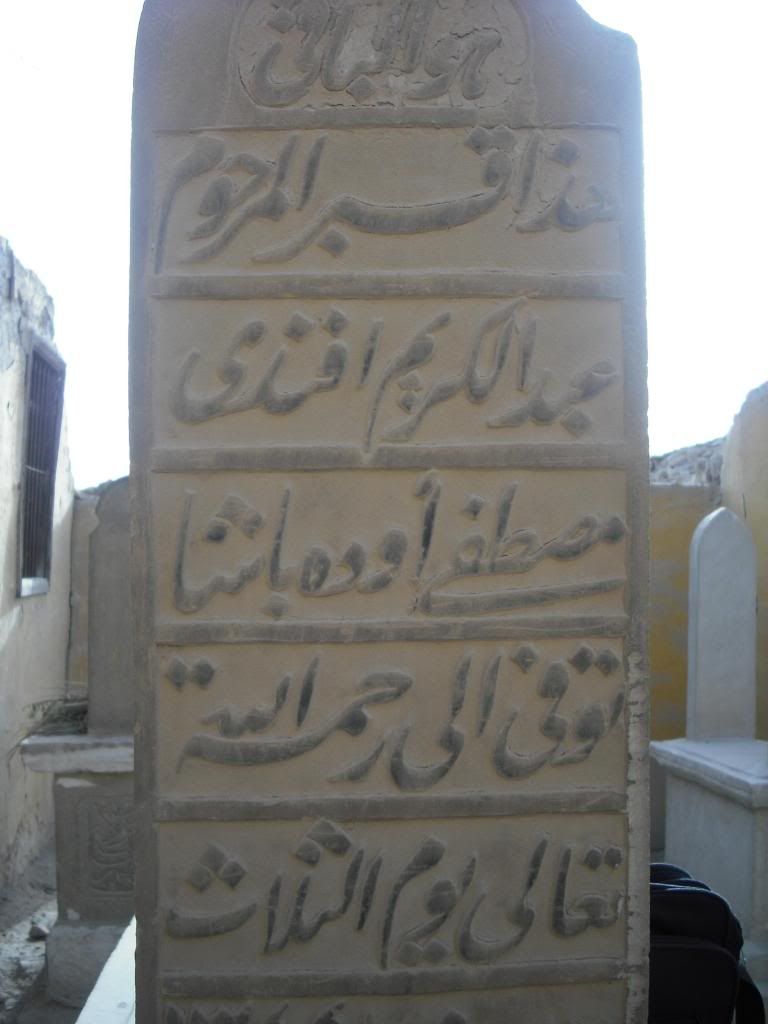 هو الباقي
هذا قبر المرحوم
عبد الكريم افندى
مصطفى أوده باشا
توفى الى رحمة الله
تعالى يوم الثلاث